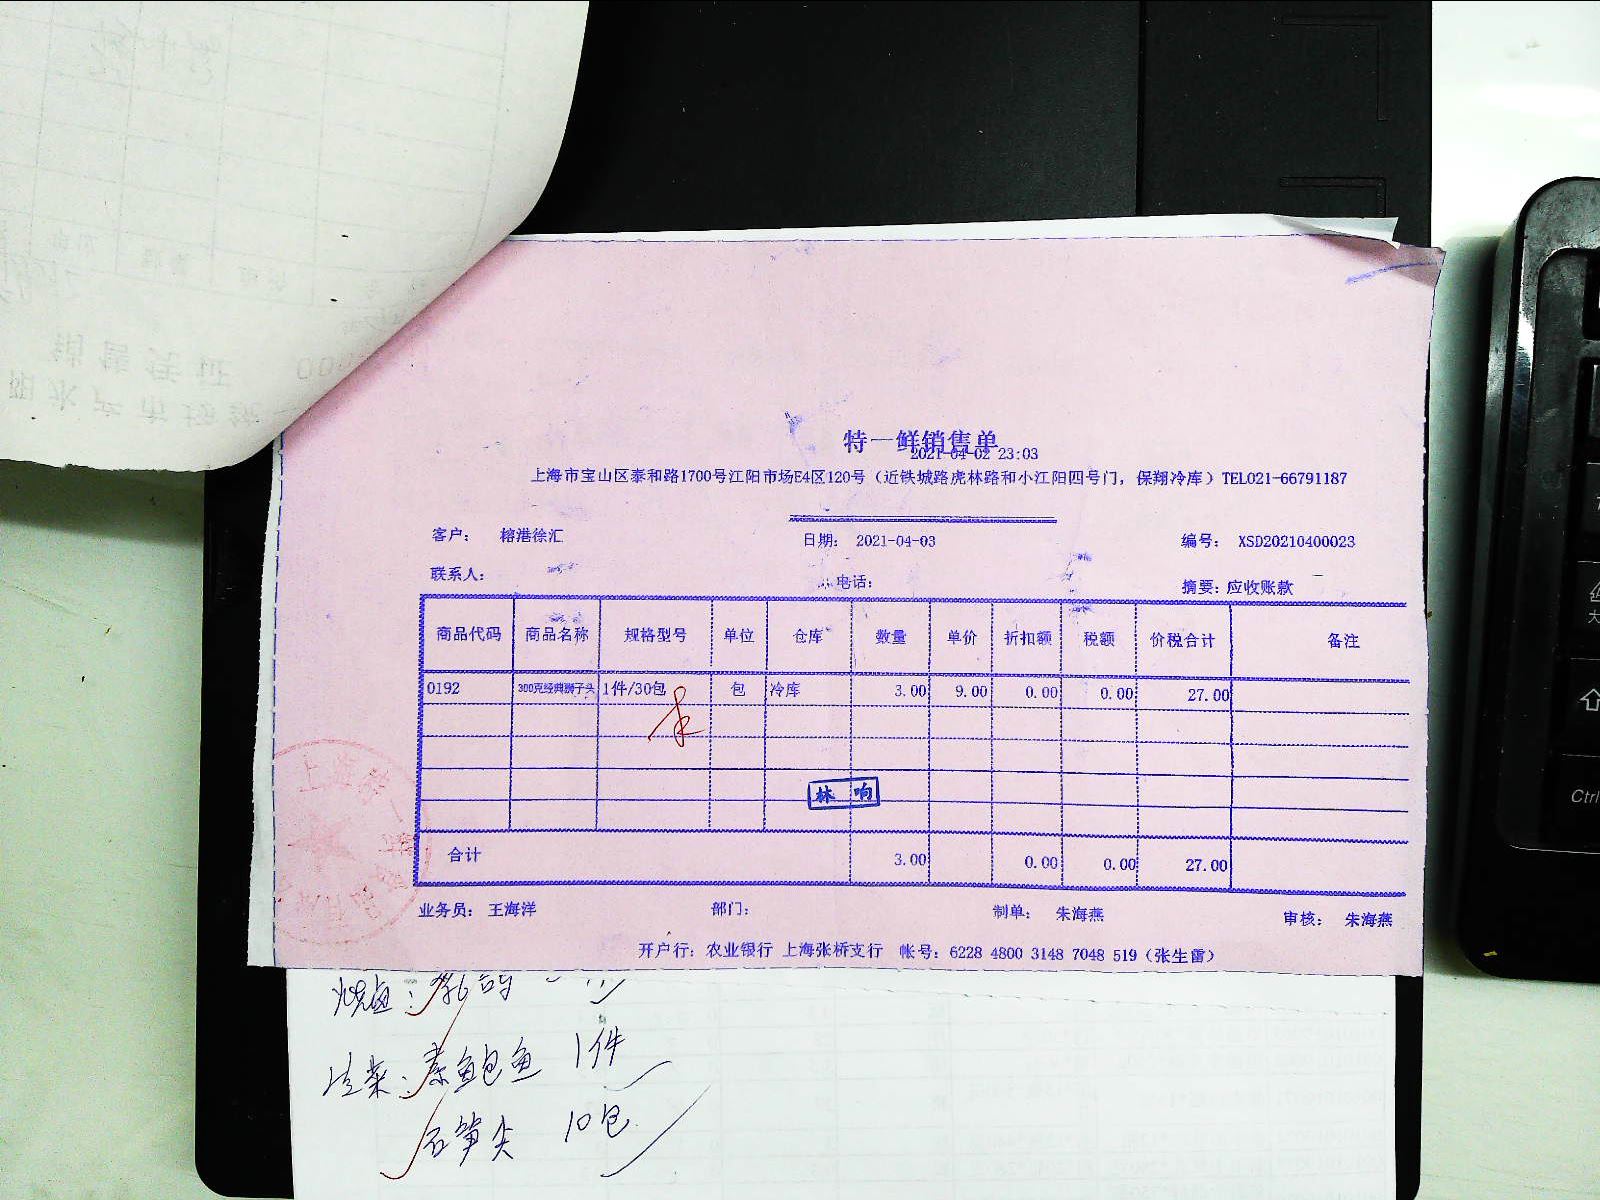 特一鲜销售单
2021-04-02 23:03
上海市宝山区泰和路1700号江阳市场E4区120号（近铁城路虎林路和小江阳四号门，保翔冷库）TEL021-66791187
客户： 榕港徐汇 日期： 2021-04-03 编号： XSD20210400023
联系人： 电话： 摘要：应收账款
商品代码 商品名称 规格型号 单位 仓库 数量 单价 折扣额 税额 价税合计 备注
0192 300克经典狮子头 1件/30包 包 冷库 3.00 9.00 0.00 0.00 27.00
林 响
合计 3.00 0.00 0.00 27.00
业务员： 王海洋 部门： 制单： 朱海燕 审核： 朱海燕
开户行：农业银行 上海张桥支行 帐号：6228 4800 3148 7048 519（张生雷）
烧卤：乳鸽
素鲍鱼 1件
石笋尖 10包
Ctrl